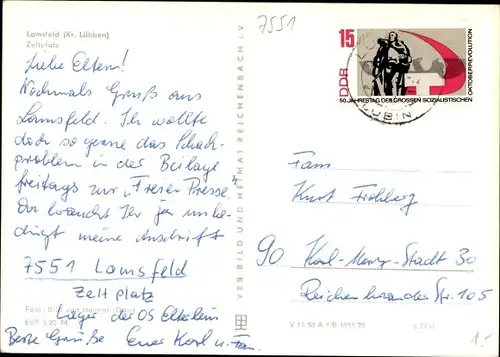 Lamsfeld (Kr. Lübben)
Zeltplatz
7551
Liebe Eltern!
Nochmals Gruß aus
Lamsfeld. Ihr wollte
doch so gerne das Schach-
problem in der Beilage
freitags zur "Freien Presse".
Da braucht Ihr ja unbe-
dingt meine Anschrift
7551 Lamsfeld
Zeltplatz
Lager der OS
Beste Grüße Euer Karl u. Fam.
EVP 0,20 M
VEB BILD UND HEIMAT REICHENBACH I. V.
15
DDR
50. JAHRESTAG DER GROSSEN SOZIALISTISCHEN
OKTOBERREVOLUTION
Fam
Kurt
90 Karl-Marx-Stadt 30
Reichenbrander Str. 105
1.-